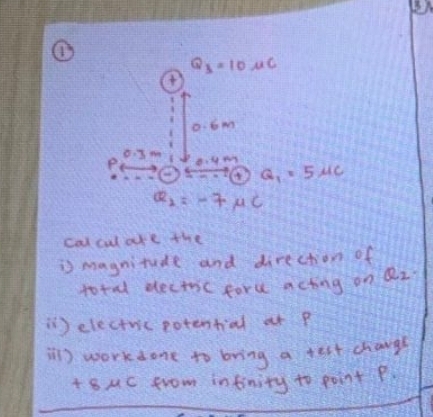 ①
Q₃ = 10 μC
0.6m
0.3m
0.4m
P
Q₁ = 5 μC
Q₂ = -7 μC
Calculate the
i) magnitude and direction of
total electric force acting on Q₂.
ii) electric potential at P
iii) workdone to bring a test charge
+8 μC from infinity to point P.